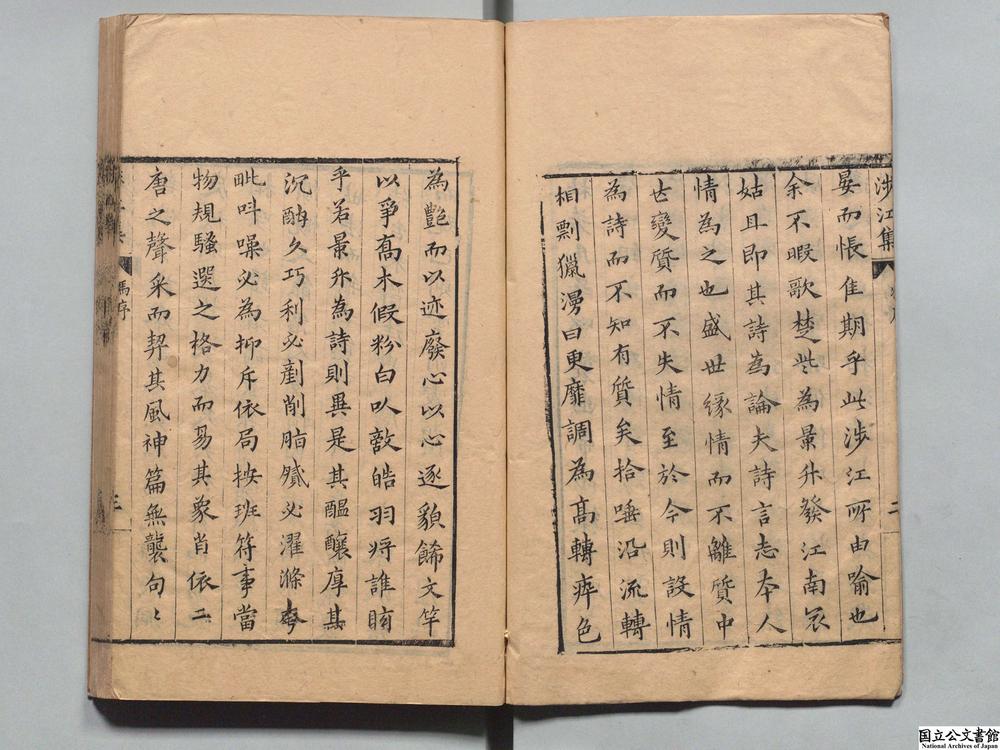 涉江集
二
晏而悵隹期乎此涉江所由喻也
余不暇歌楚些為景升發江南哀
姑且即其詩為論夫詩言志本人
情為之也盛世緣情而不離質中
古變質而不失情至於今則設情
為詩而不知有質矣拾唾沿流轉
相剽獵漫曰更靡調為高轉瘁色
為艷而以迹廢心以心逐貌餙文竿
以爭喬木假粉白以敵皓羽将誰眩
乎若景升為詩則異是其醞釀厚其
沉酣久巧利必剷削脂膩必濯滌
呲呌噪必為抑斥依局按班符事當
物規騷選之格力而易其象肖依二
唐之聲采而契其風神篇無襲句〻
馮序
三
国立公文書館
National Archives of Japan